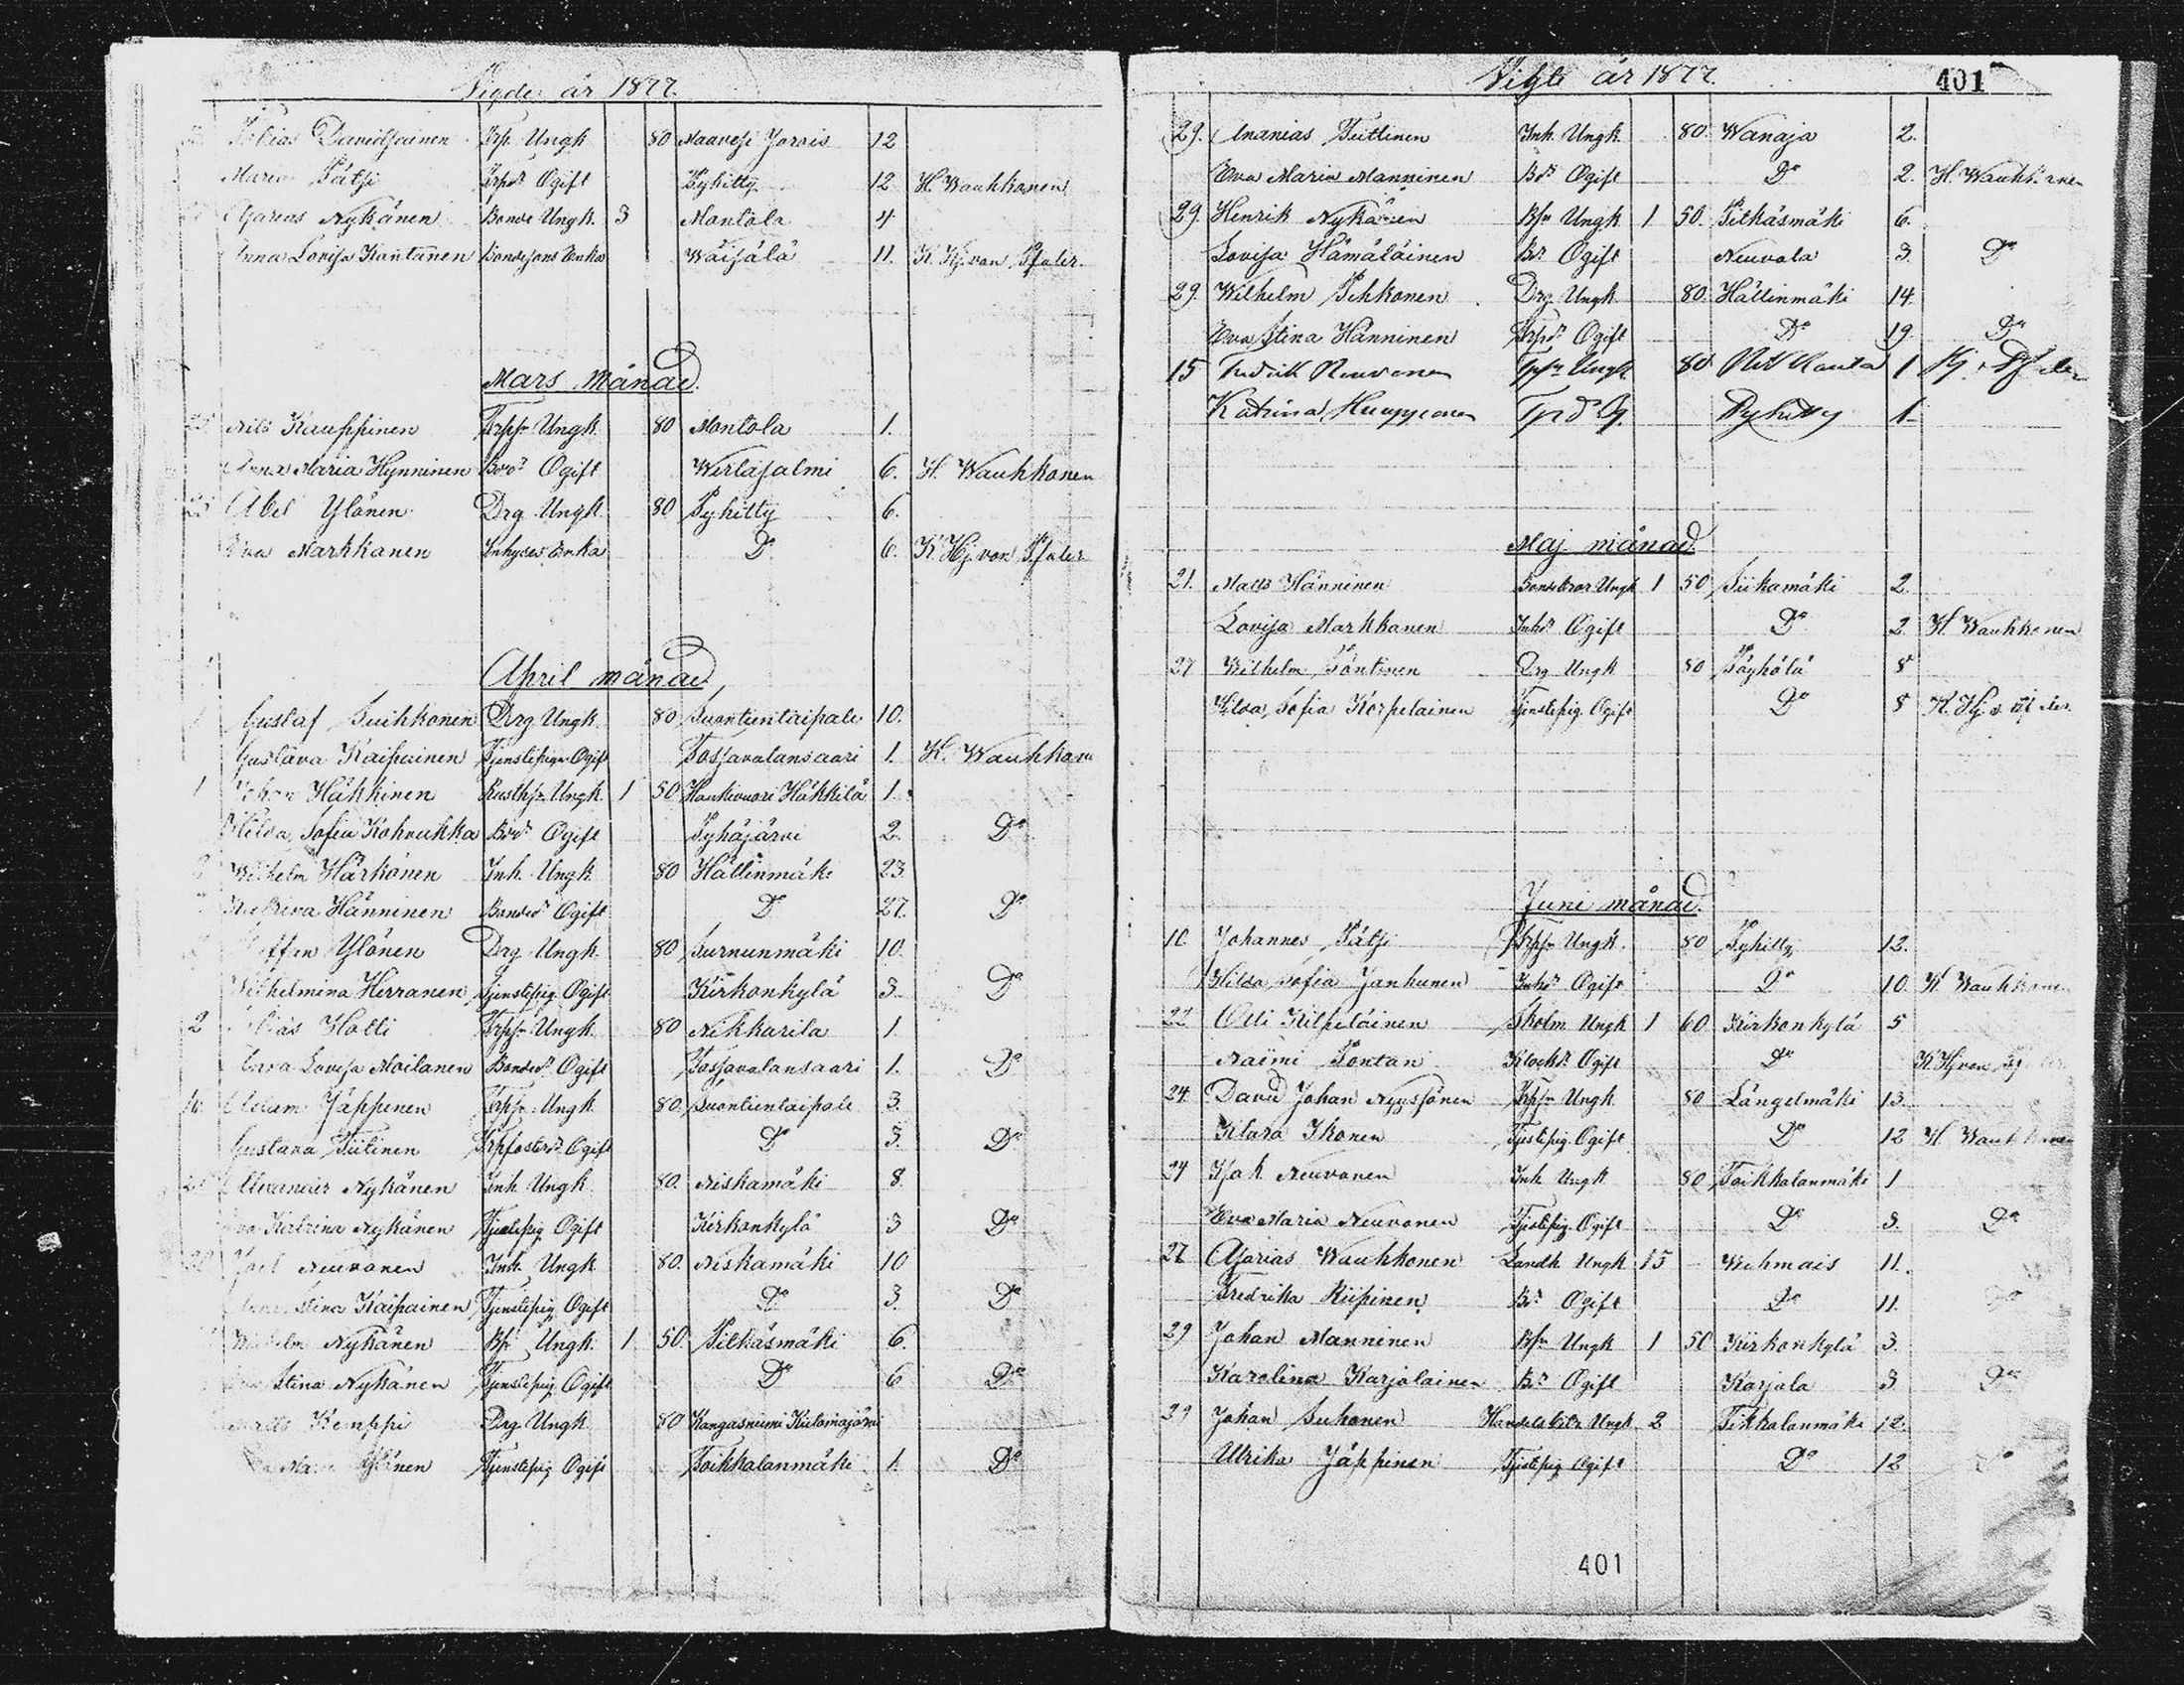 Vigde år 1877.
Tobias Davidsainen Trp. Ungk 80 Maavesi Jorois 12
Maria Pätsi Trpdr Ogift Pyhitty 12 H Wauhkonen
Asarias Nykänen Bonde Ungk. 3 Montola 4
Anna Lovisa Kantanen Bondesons Enka Wäisälä 11. K. Hj. von Pfaler.
Mars månad.
Nils Kauppinen Trpsn Ungk. 80 Montola 1.
Anna Maria Hynninen Bdr Ogift Wirtasalmi 6. H. Wauhkonen
Abel Ylönen Drg Ungk 80 Pyhitty 6.
Eva Markkanen Inhyses Enka Do 6. K Hj. von Pfaler
April månad,
Gustaf Suihkonen Drg Ungk. 80 Suontientaipale 10.
Gustava Kaipainen Tjenstepign Ogift Tossavalansaari 1. H. Wauhkone
1 Johan Häkkinen Rusthsn Ungk. 1 50 Haukivuori Häkkilä 1.
Hilda Sofia Kohvakka Bdr Ogift Pyhäjärvi 2. Do
Wilhelm Härkönen Inh. Ungk 80 Hällinmäki 23
Katrina Hänninen Bondedr Ogift Do 27. Do
Steffen Ylönen Drg Ungk. 80 Surnunmäki 10.
Wilhelmina Herranen Tjenstepig Ogift Kirkonkylä 3. Do
2 Tobias Holti Trpsn Ungk. 80 Nikkarila 1.
Anna Lovisa Moilanen Bondedr Ogift Tossavalansaari 1. Do
Adam Jäppinen Trpsn Ungk 80. Suontientaipale 3.
Gustava Tiitinen Trpfosterdr Ogift Do 3. Do
Alexander Nykänen Inh Ungk 80. Niskamäki 8.
Eva Katrina Nykänen Tjenstepig Ogift Kirkonkylä 3 Do
Joel Neuvonen Inh. Ungk 80. Niskamäki 10
Anna Stina Kaipainen Tjenstepig Ogift Do 3. Do
Wilhelm Nykänen Bsn Ungk. 1 50. Pitkäsmäki 6.
Stina Nykänen Tjenstepig Ogift Do 6 Do
Matts Kemppi Drg Ungk 80 Kangasniemi Kutemajärvi
Ylönen Tjenstepig Ogift Toikkalanmäki 1. Do
Vigde år 1877. 401
29. Ananias Tuttinen Inh. Ungk. 80. Wanaja 2.
Eva Maria Manninen Bdr Ogift Do 2. H. Wauhkonen
29. Henrik Nykänen Bsn Ungk 1 50. Pitkäsmäki 6.
Lovisa Hämäläinen Bdr Ogift Neuvola 3. Do
29. Wilhelm Pihkonen Drg Ungk 80. Hällinmäki 14.
Eva Stina Hänninen Trpdr Ogift Do 19. Do
15 Fredrik Neuvonen Trpsn Ungk 80 1 Hj. v Pfaler
Katrina Huupponen Trpdr Og. Pyhitty 1
Maj månad.
21. Matts Hänninen Bondebror Ungk 1 50 Siikamäki 2.
Lovisa Markkanen Inhdr Ogift Do 2. H Wauhkonen
27 Wilhelm Pöntinen Drg Ungk 80 Pöyhölä 8
Hilda Sofia Korpelainen Tjenstepig. Ogift Do 8 K. Hj. v Pfaler.
Juni månad.
10 Johannes Pätsi Trpsn Ungk. 80 Pyhitty 12.
Hilda Sofia Janhunen Inhdr Ogift Do 10. H Wauhkonen
22 Olli Kilpeläinen Skolm Ungk 1 60 Kirkonkylä 5
Naimi Pontan Klockdr Ogift Do K Hj von Pf
24 David Johan Nyyssönen Trpsn Ungk 80 Längelmäki 13.
Klara Ikonen Tjenstepig Ogift Do 12 H Wauhkonen
24 Isak Neuvonen Inh Ungk 80 Toikkalanmäki 1
Eva Maria Neuvonen Tjenstepig Ogift Do 3. Do
27 Asarias Wauhkonen Landh Ungk 15 - Wehmais 11.
Fredrika Kiipinen Bdr Ogift Do 11. Do
29 Johan Manninen Bsn Ungk 1 50 Kirkonkylä 3.
Karolina Karjalainen Bdr Ogift Karjala 3 Do
29 Johan Suhonen Handelsbitr Ungk 2 Tikkalanmäki 12.
Ulrika Jäppinen Tjenstepig Ogift Do 12 Do
401